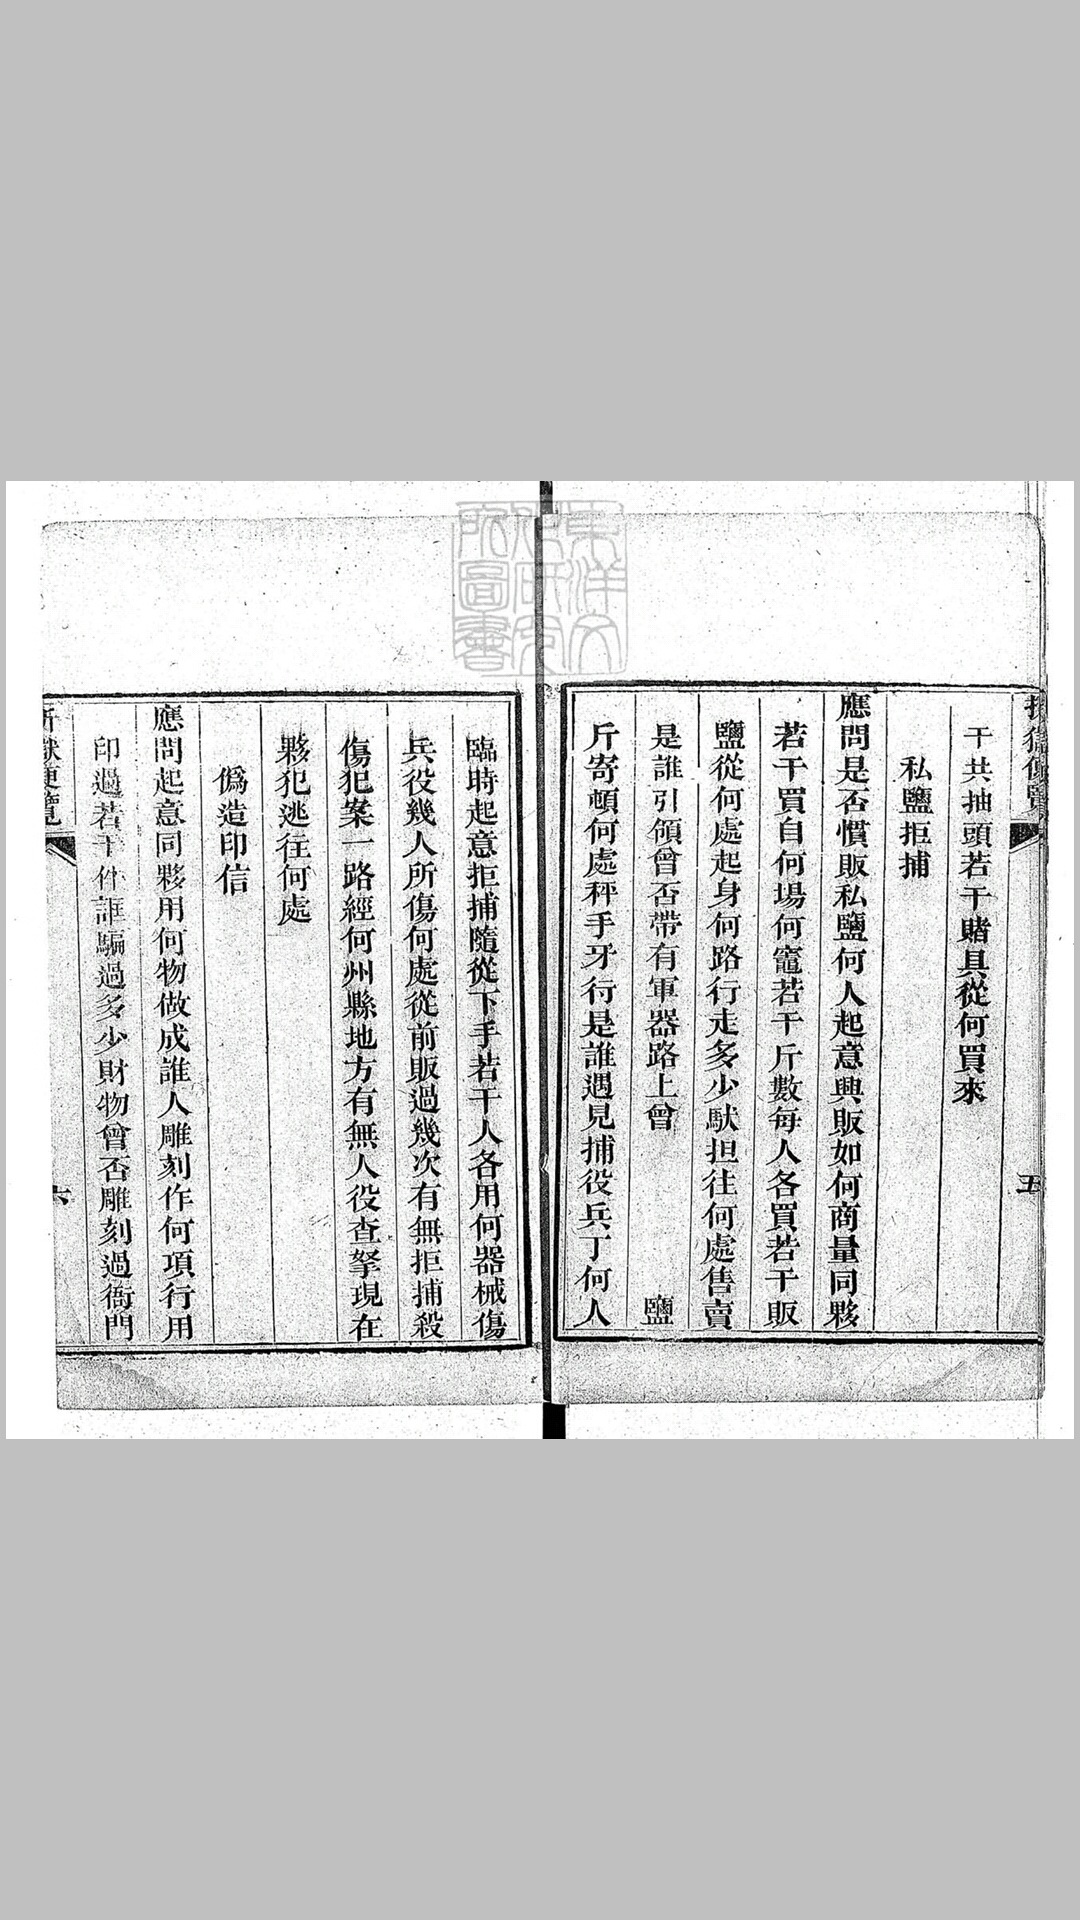 干共抽頭若干賭具從何買來
私鹽拒捕
應問是否慣販私鹽何人起意興販如何商量同夥
若干買自何場何竈若干斤數每人各買若干販
鹽從何處起身何路行走多少馱担往何處售賣
是誰引領曾否帶有軍器路上曾 鹽
斤寄頓何處秤手牙行是誰遇見捕役兵丁何人
臨時起意拒捕隨從下手若干人各用何器械傷
兵役幾人所傷何處從前販過幾次有無拒捕殺
傷犯案一路經何州縣地方有無人役查拏現在
夥犯逃往何處
偽造印信
應問起意同夥用何物做成誰人雕刻作何項行用
印過若干件誆騙過多少財物曾否雕刻過衙門
折獄便覽
六
五
東洋文
化研究
所圖書